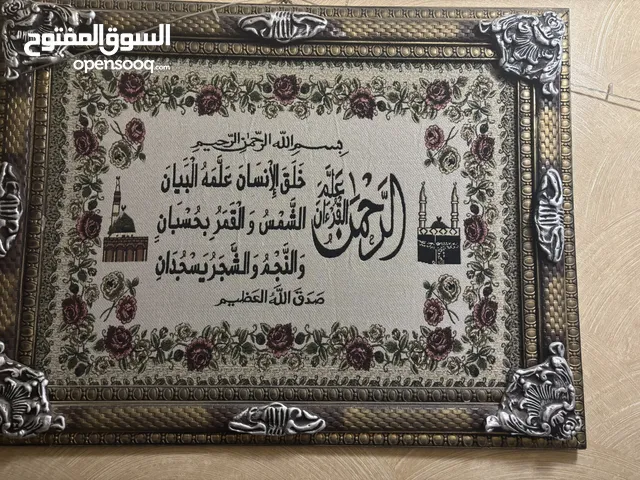 السوق المفتوح
opensooq.com
بسم الله الرحمن الرحيم
الرَّحْمَنُ عَلَّمَ القُرْءَانَ
خَلَقَ الإِنسَانَ عَلَّمَهُ الْبَيَانَ
الشَّمْسُ وَالْقَمَرُ بِحُسْبَانٍ
وَالنَّجْمُ وَالشَّجَرُ يَسْجُدَانِ
صَدَقَ اللَّهُ العَظِيم